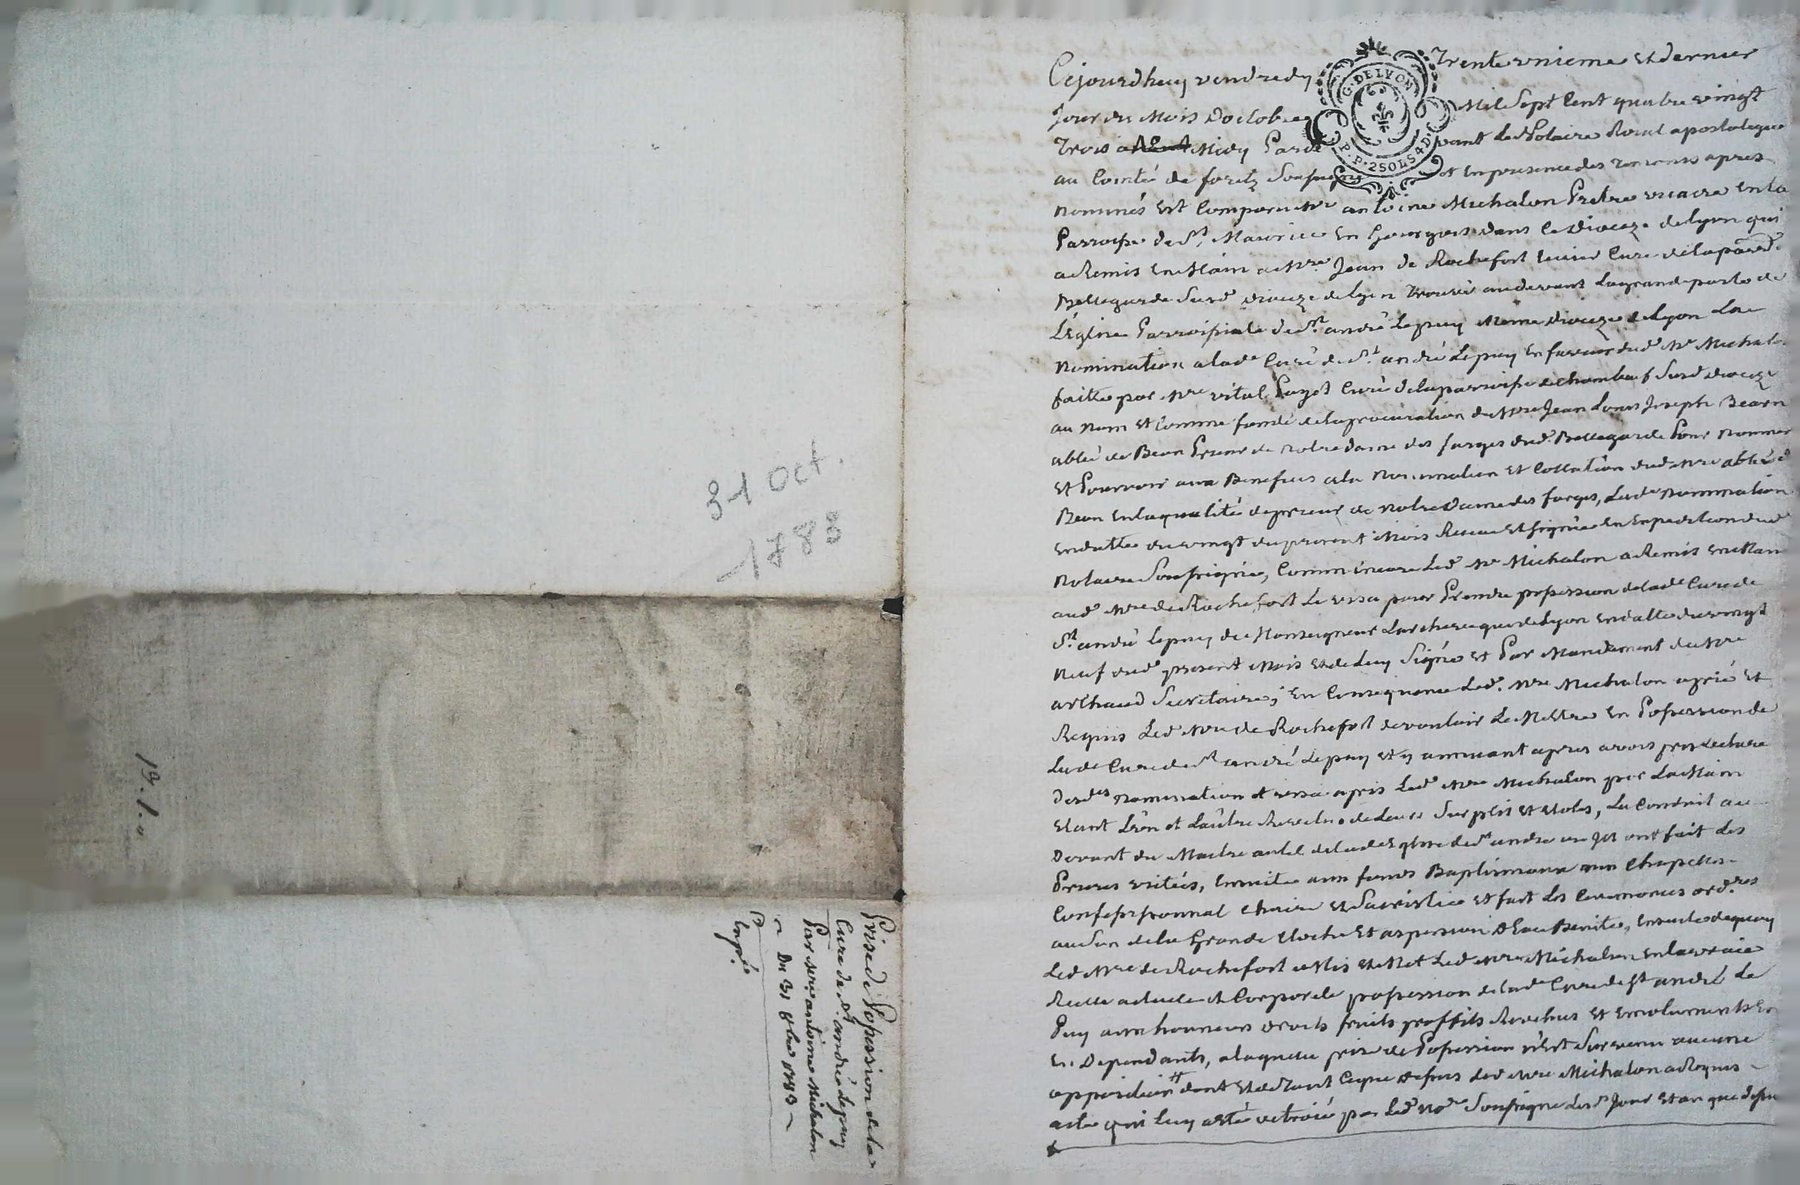 31 Oct.
1783
19. 1. a
Prise de Possession de la
Cure de St. andré lepuy
Par mre antoine Michalon
Du 31 8bre 1783
Cejourdhuy vendredy trente unieme et dernier
Jour du Mois Doctobre Mil Sept Cent quatre vingt
trois a Midy Pardevant le Notaire Roial apostolique
au Comté de forez Soussigné et en presence des temoins apres
nommés est Comparu Mre antoine Michalon Prêtre vicaire en la
Parroisse de St. Maurice en Gourgois dans le Dioceze de lyon qui
a Remis en Main a Mre Jean de Rochefort Curé de la par. de
Bellegarde Susd. dioceze de lyon trouvé au devant la grande porte de
L'église Parroissiale de St. andré Lepuy Meme dioceze de Lyon La
nomination a la de. Cure de St. andré Lepuy en faveur dud. Mre Michalon
faitte par Mre vital Cure de la parroisse de chambeuf Susd. dioceze
au nom et comme fondé de la procuration de Mre Jean Louis Joseph Bearn
abbé de Bean Prieur de notre dame des farges dud. Bellegarde Pour nommer
et Pourvoir aux Benefices a la Nomination et Collation dud. Mre abbé de
Bean en la qualité de prieur de notre Dame des farges, lad. nomination
en datte du vingt du present Mois Recue et signée en Expedition dud.
Notaire Soussigné, Comm' encore Led. Mre Michalon a Remis en Main
aud. Mre de Rochefort Le visa pour Prendre possession de lad. Cure de
St. andré Lepuy de Monseigneur Larcheveque de Lyon en datte du vingt
neuf dud. present Mois et de Luy Signé et Par Mandement de Mre
arthaud Secretaire; En Consequence Led. Mre Michalon a prié et
Requis Led. Mre de Rochefort de vouloir Le Mettre en Possession de
Lad. Cure de St. andré Lepuy et y annuant apres avoir pris Lecture
desdes. nomination et visa a pris Led. Mre Michalon par La Main
etant L'un et L'autre Revetus de Leurs Surplis et etoles, La Conduit au
Devant du Maitre autel de lad. Eglise de St. andré ou ils ont fait des
Prieres usitées, Ensuite aux fonds Baptismaux aux Chapelles
Confessionnal Chaire et Sacristie et fait les Ceremonies ord.res
au Son de la Grande Cloche et aspersion d'Eau Benite, Ensuite dequoy
Led. Mre de Rochefort a Mis et Met Led. Mre Michalon en la vraie
Reelle actuelle et Corporelle possession de lad. Cure de St. andré Le
Puy aux honneurs droits fruits proffits Revenus et Emoluments
En Dependants, a laquelle prise de Possession n'est Survenu aucune
opposition dont et de tout Ceque dessus led. Mre Michalon a Requis
acte qui luy a été octroié par Led. No.re Soussigné lesd. Jour et an que dessus
G. DE LYON
P. P. 2 SOLS 4 D.